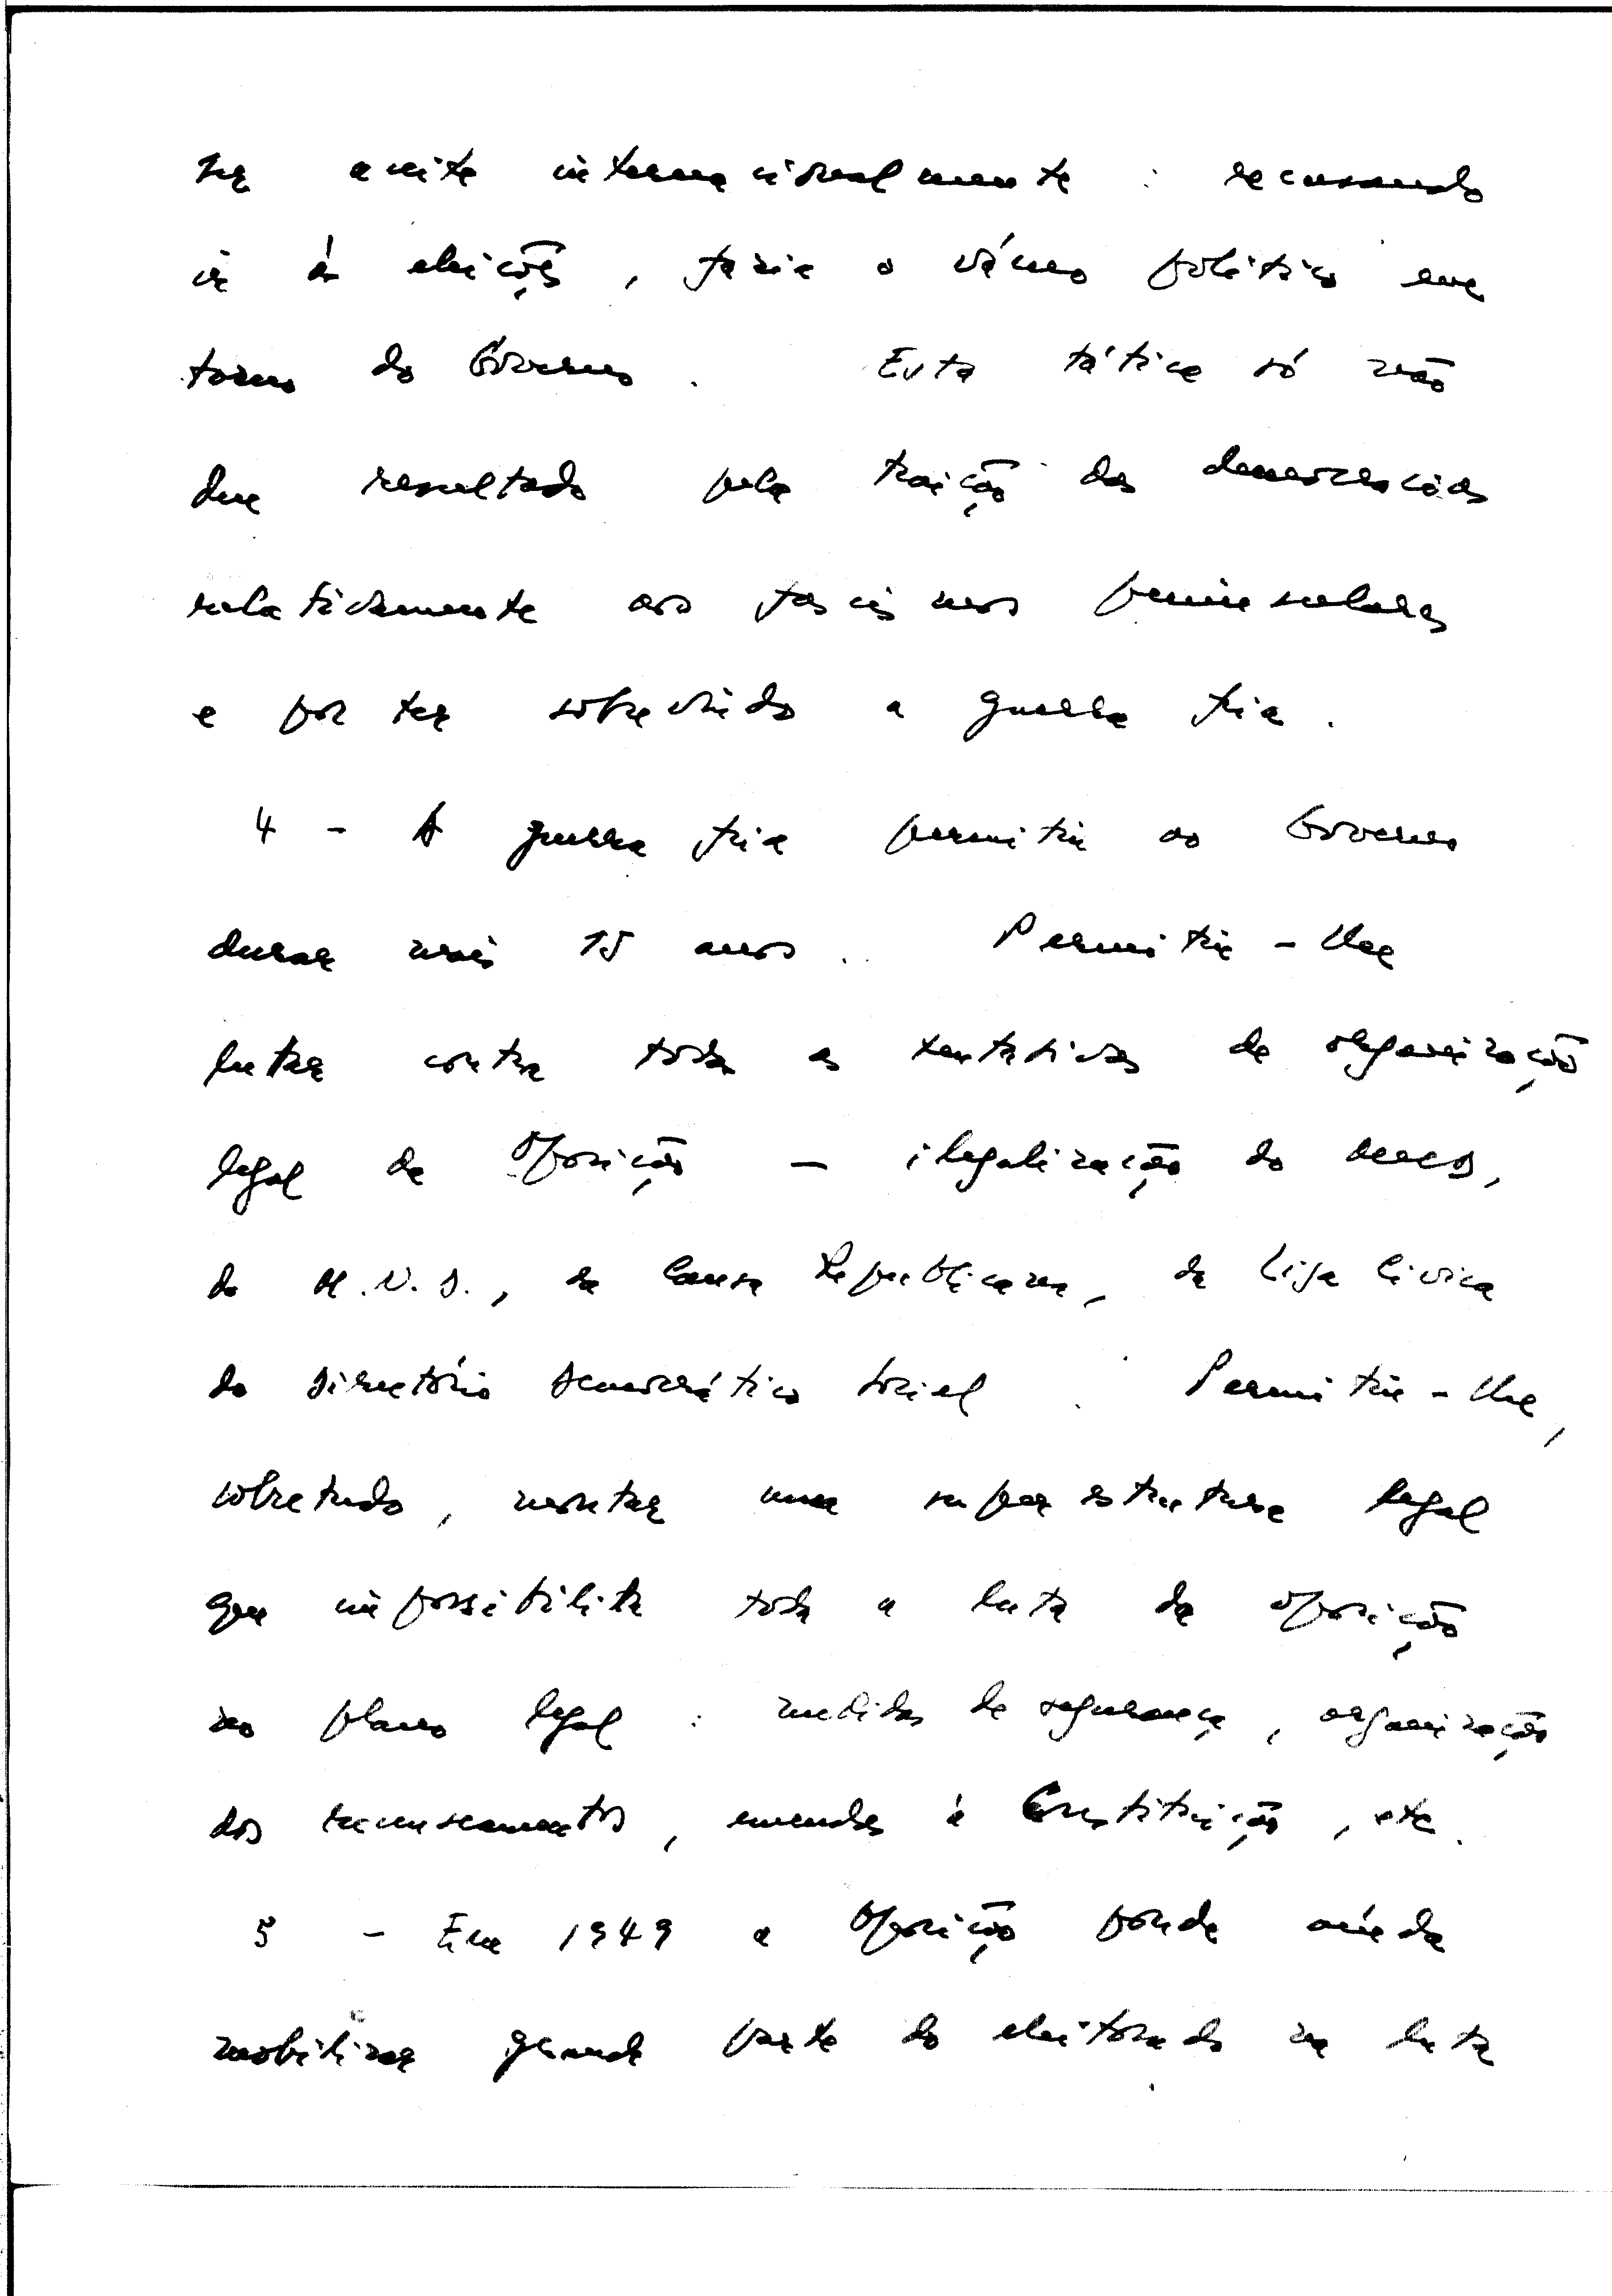 ser aceite internacionalmente : recusando
ir às eleições, fazia o vácuo político em
torno do Governo. Esta táctica só não
deu resultado pela traição das democracias
relativamente aos fascismos peninsulares
e por ter sobrevindo a guerra fria.
4 - A guerra fria permitiu ao Governo
durar mais 15 anos. Permitiu-lhe
lutar contra todas as tentativas de organização
legal da Oposição — ilegalização do
do M.N.D., da Causa Republicana, da Liga Cívica
do Directório Democrático Social. Permitiu-lhe,
sobretudo, montar uma superestrutura legal
que impossibilita toda a luta da oposição
no plano legal : medidas de segurança, organização
dos recenseamentos, emendas à Constituição, etc.
5 - Em 1949 a Oposição pôde ainda
mobilizar grande parte do eleitorado na luta